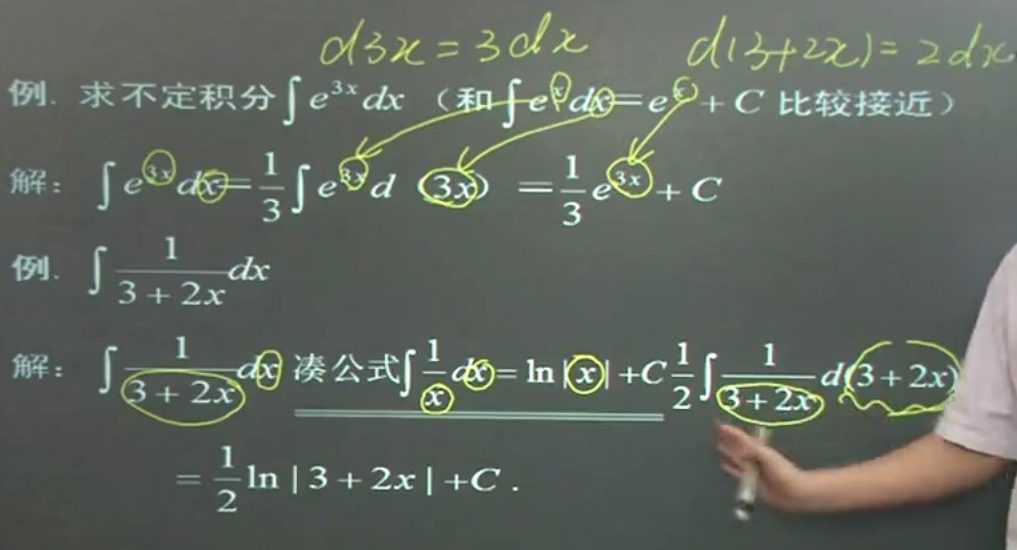 d3x = 3dx    d(3+2x) = 2dx
例. 求不定积分∫e^{3x}dx （和∫e^x dx=e^x + C 比较接近）
解: ∫e^{3x}dx=\frac{1}{3}∫e^{3x}d（3x） =\frac{1}{3}e^{3x} + C
例. ∫\frac{1}{3 + 2x}dx
解: ∫\frac{1}{3 + 2x}dx 凑公式∫\frac{1}{x}dx = ln|x| +C \frac{1}{2}∫\frac{1}{3 + 2x}d(3 + 2x)
= \frac{1}{2}ln | 3 + 2x | +C .